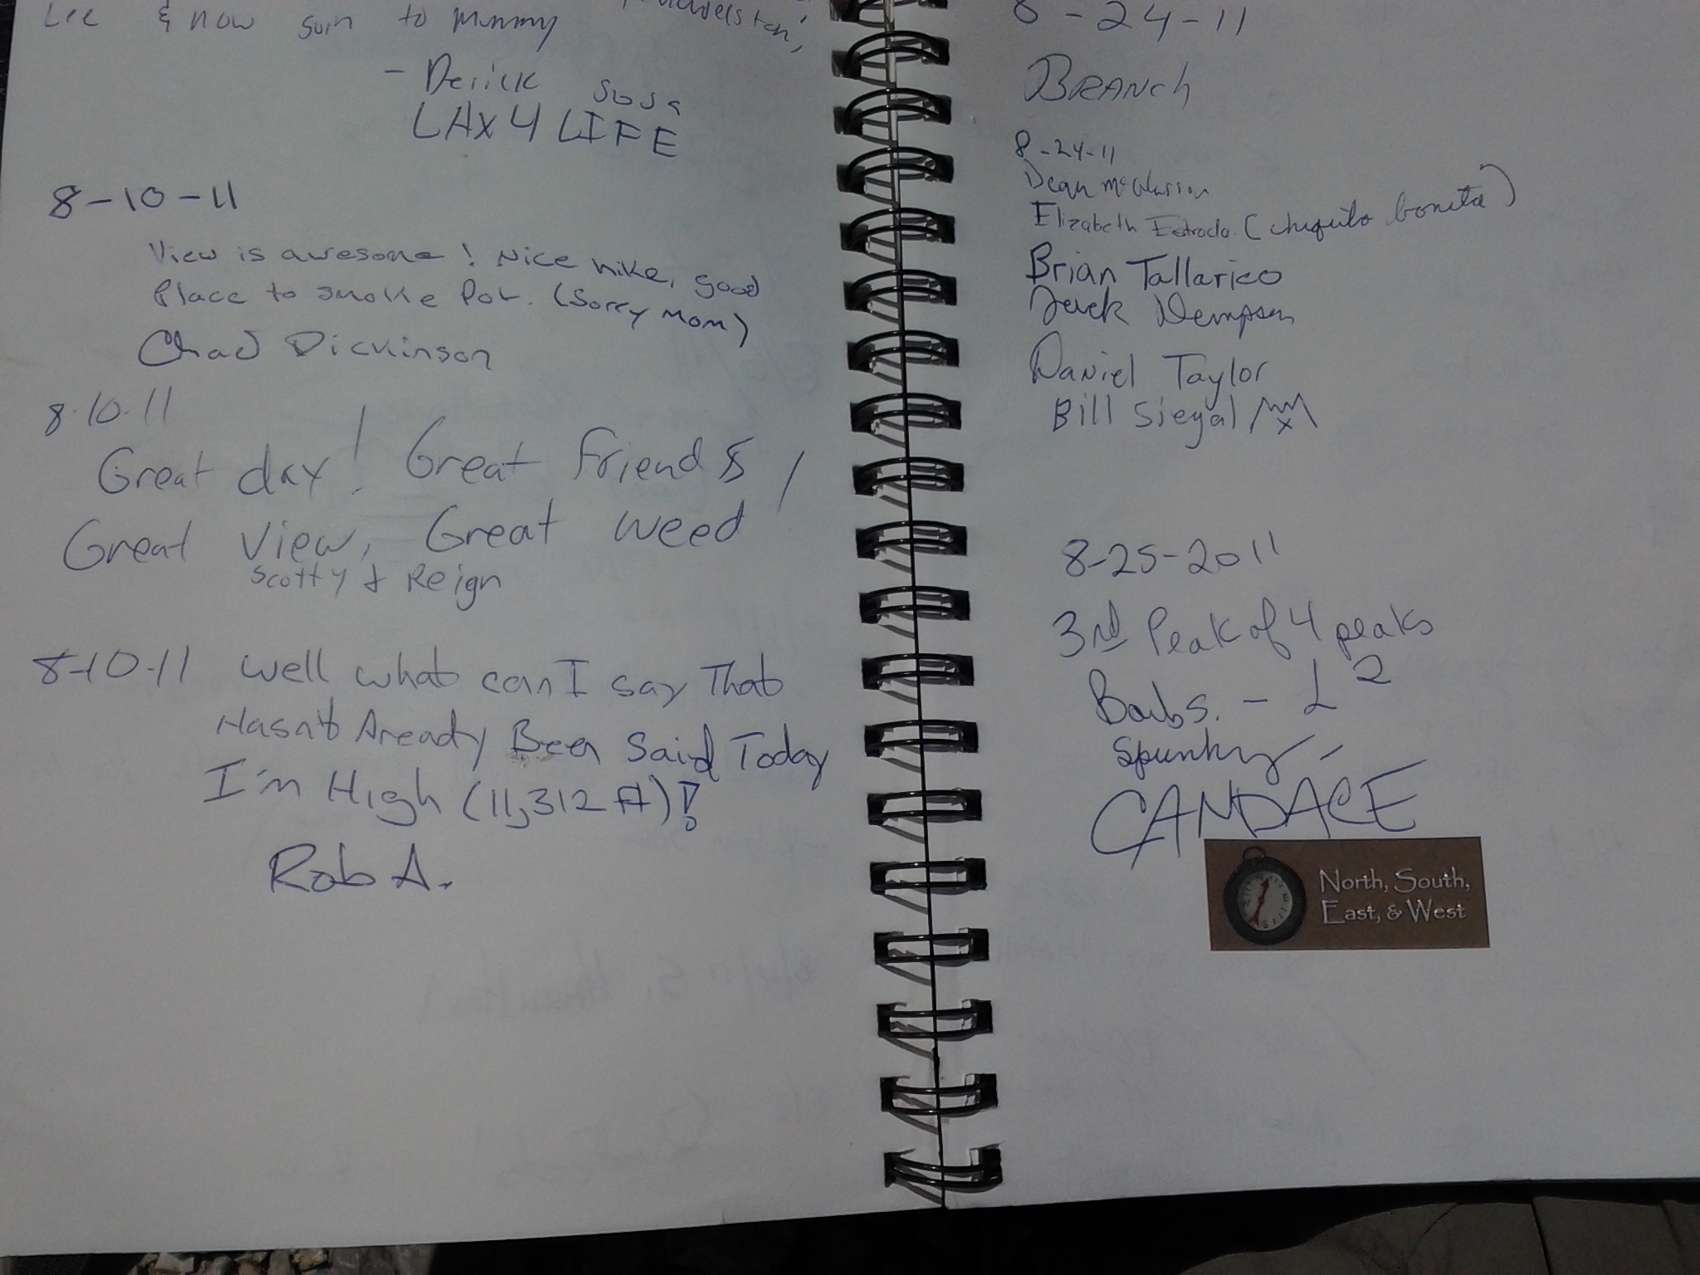 Lee & now som to mummy
- Derick Sosa
LAX 4 LIFE
8-10-11
View is awesome! Nice hike, good
Place to smoke Pot. (Sorry Mom)
Chad Dickinson
8-10-11
Great day! Great friends,
Great View, Great weed
Scotty & Reign
8-10-11 Well what can I say That
Hasn't Aready Been Said Today
I'm High (11,312 ft)!
Rob A.
8-24-11
BRANCh
8-24-11
Dean
Elizabeth Estrada (chiquita bonita)
Brian Tallarico
Dempsen
Daniel Taylor
Bill Siegal
8-25-2011
3rd Peak of 4 peaks
Barbs. - L2
Spunky -
CANDACE
North, South,
East, & West